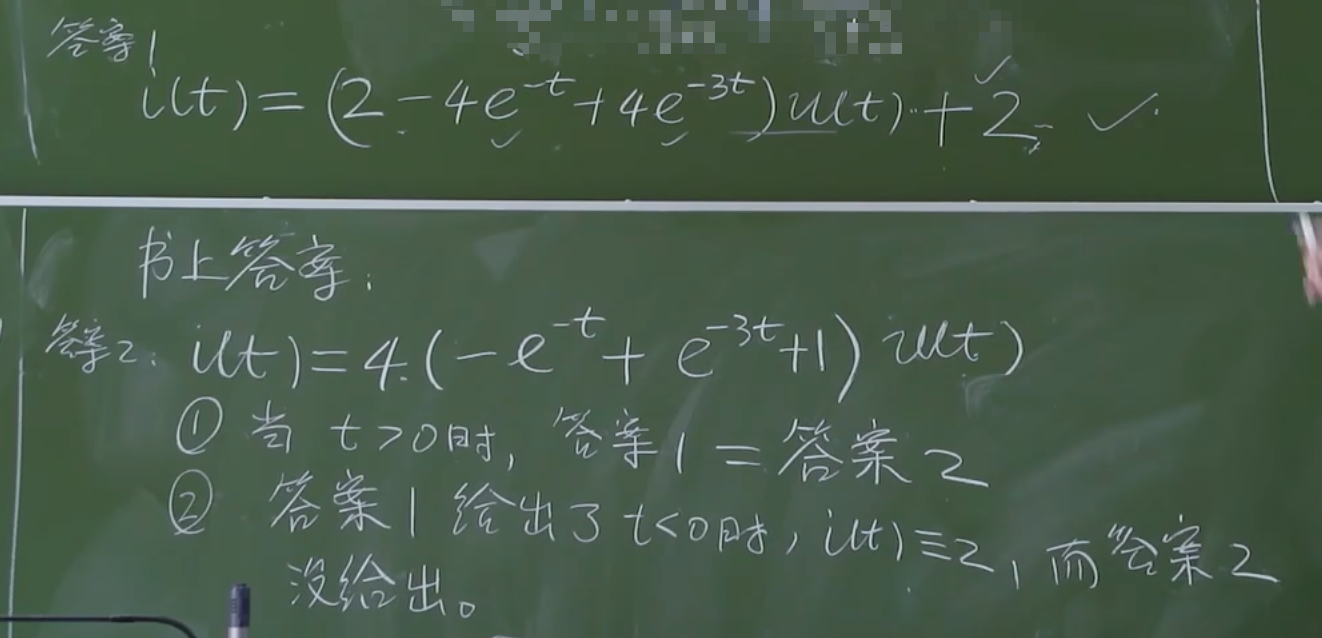 答案1
i(t)=(2-4e^{-t}+4e^{-3t})u(t)+2
书上答案:
答案2: i(t)=4(-e^{-t}+e^{-3t}+1)u(t)
① 当 t>0时, 答案1=答案2
② 答案1给出了t<0时, i(t)≡2, 而答案2
没给出。